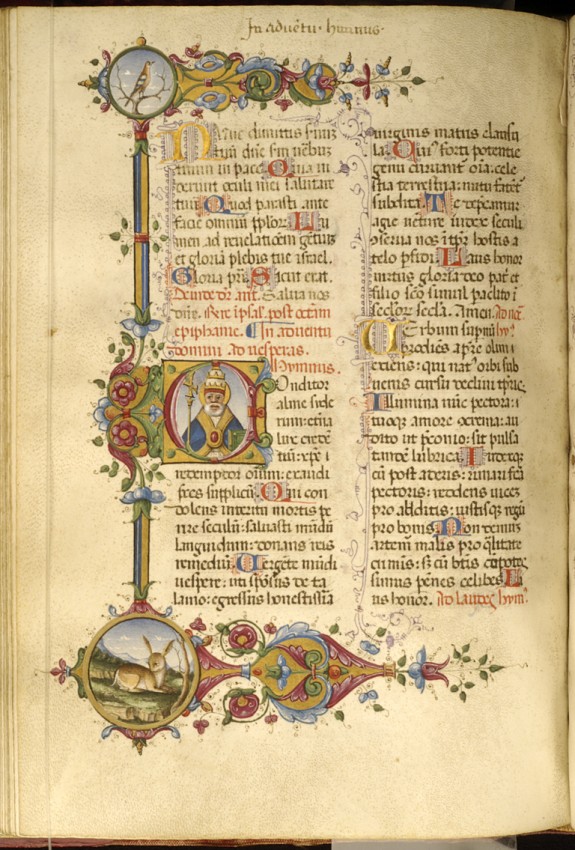 In adue͂tu · himnus ·
Nunc dimittis seruu͂
tuu͂ dn͂e: sm͂ uerbu͂
tuum in pace. Quia ui
derunt oculi mei salutare
tuu͂. Quod parasti: ante
faciem omniu͂ pp͂lor͂. Lu
men ad reuelatiõem gentiu͂
et gloriã plebis tue israel.
Gloria pr͂i. Sicut erat.
Deinde dr͂. ant͂. Salua nos
dn͂e. Require ipsã post octam
epiphanie. In aduentu
domini ad uesperas.
Hymnus.
Conditor
alme side
rum: etna
lux crede͂
tiu͂: xp͂e
redemptor oĩum: exaudi
preces supplicu͂. Qui con
dolens interitu mortis pe
rire seculu͂: saluasti mu͂du͂
languidum: donans reis
remediu͂. Uergente mu͂di
uespere: uti spo͂sus de ta
lamo: egressus honestissĩa
uirginis matris clausu
la. Cuius forti potentie
genu curuant: oĩa: cele
stia terrestria: nutu fate͂t͂
subdita. Te deprecamur
agie: ue͂ture iudex seculi
co͂serua nos ĩ tp͂r: hostis a
telo p͂fidi. Laus honor
uirtus gloria: deo patri et
filio: sco͂ simul paclito: ĩ
seclor͂ secla. Amen. ad mat͂.
Uerbum supnu͂ hy͂.
prodiens: a p͂re olim
exiens: qui nat͂ orbi sub
uenis: cursu decliui tp͂ris.
Illumina nu͂c pectora:
tuoq amore concrema: au
dito ut p͂conio: sit pulsa
tande͂ lubrica. Iudexq
cu͂ post aderis: rimari fca͂
pectoris: reddens uice͂
pro abditis: iustisq regnu͂
pro bonis. Non demu͂
artem malis: pro qualitate
criminis: sz cu͂ btis co͂potes
simus p͂hennes celibes. La
us honor. Ad laudes hym͂.